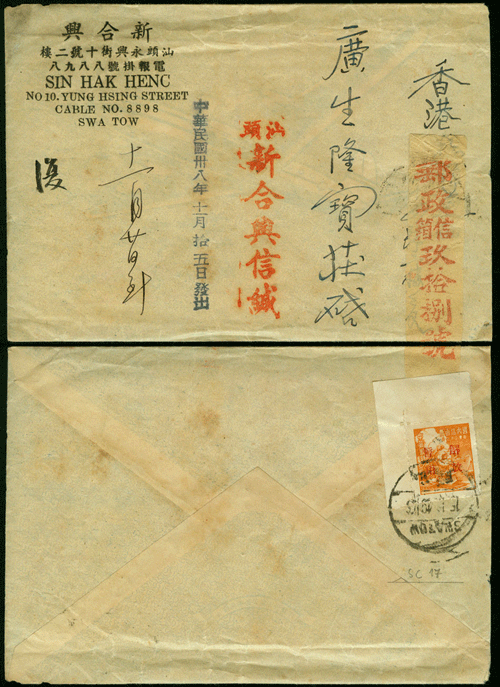 興合新
汕頭永興街十號二樓
電報掛號八八九八
SIN HAK HENC
NO 10. YUNG HSING STREET
CABLE NO. 8898
SWA TOW
香港
郵政信箱玖拾捌號
廣生隆寶莊啓
汕頭
新合興信缄
中華民國卅八年十一月拾五日發出
十一月廿日
復
SWATOW
SC 17